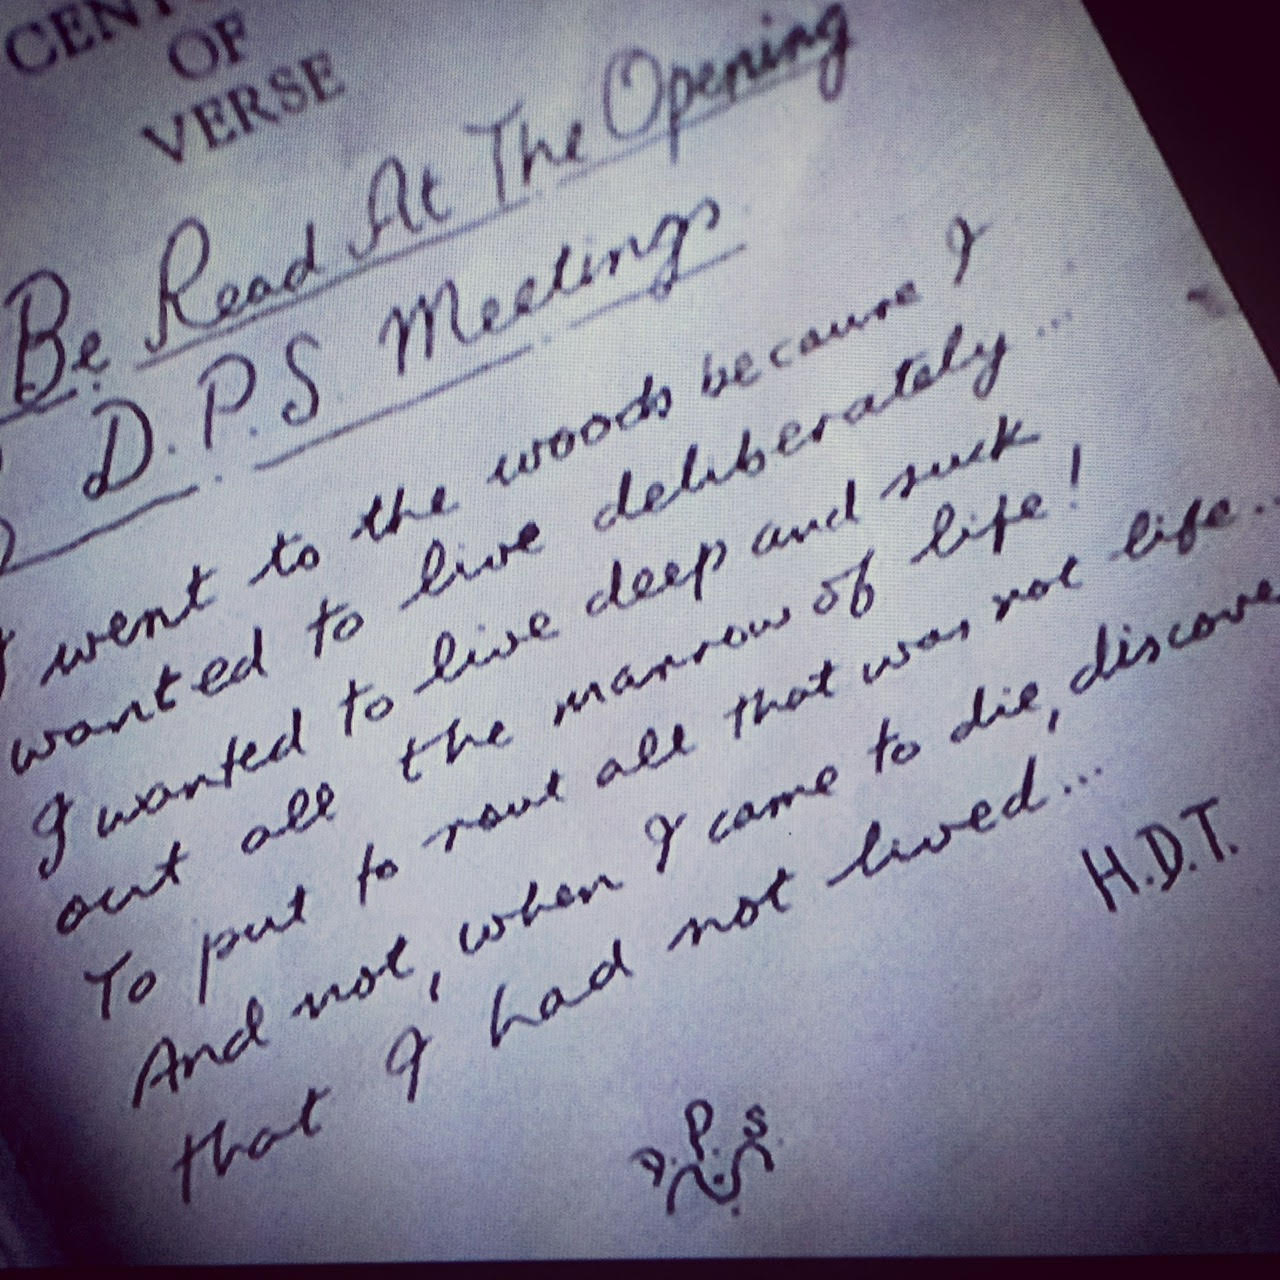 OF
VERSE
Be Read At The Opening
D.P.S Meetings
went to the woods because I
wanted to live deliberately...
I wanted to live deep and suck
out all the marrow of life!
To put to rout all that was not life...
And not, when I came to die, discover
that I had not lived...
H.D.T.
D.P.S.